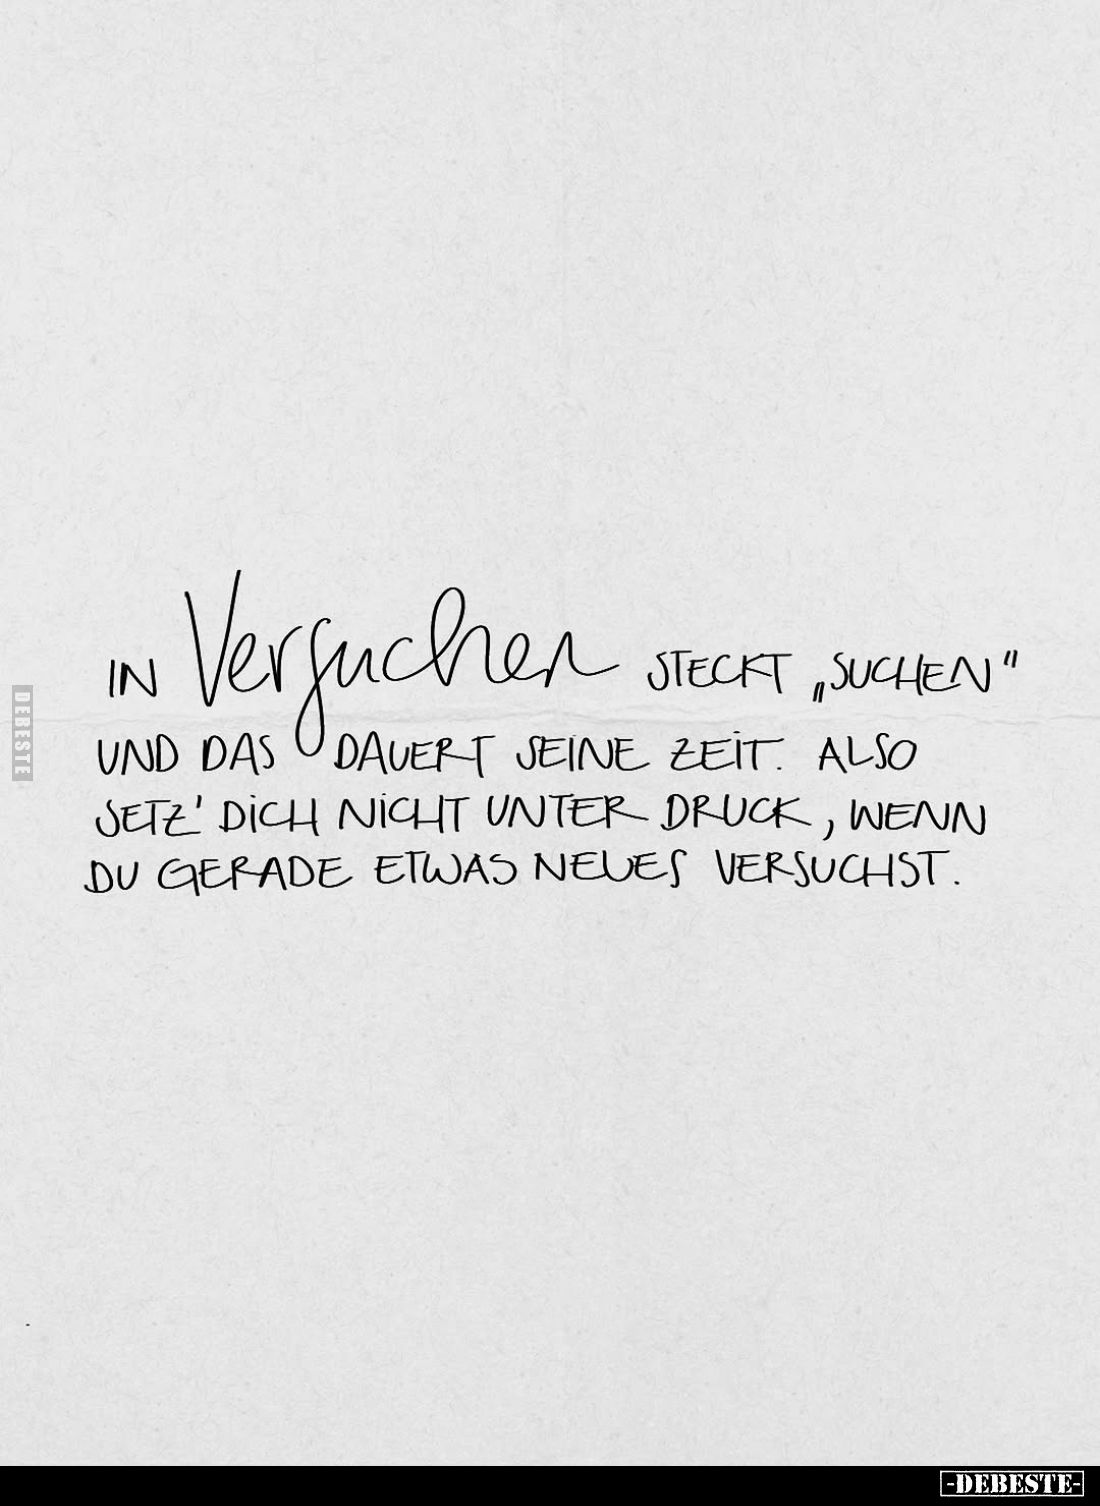 IN Versuchen STECKT „SUCHEN"
UND DAS DAUERT SEINE ZEIT. ALSO
SETZ' DICH NICHT UNTER DRUCK, WENN
DU GERADE ETWAS NEUES VERSUCHST.
DEBESTE
-DEBESTE-